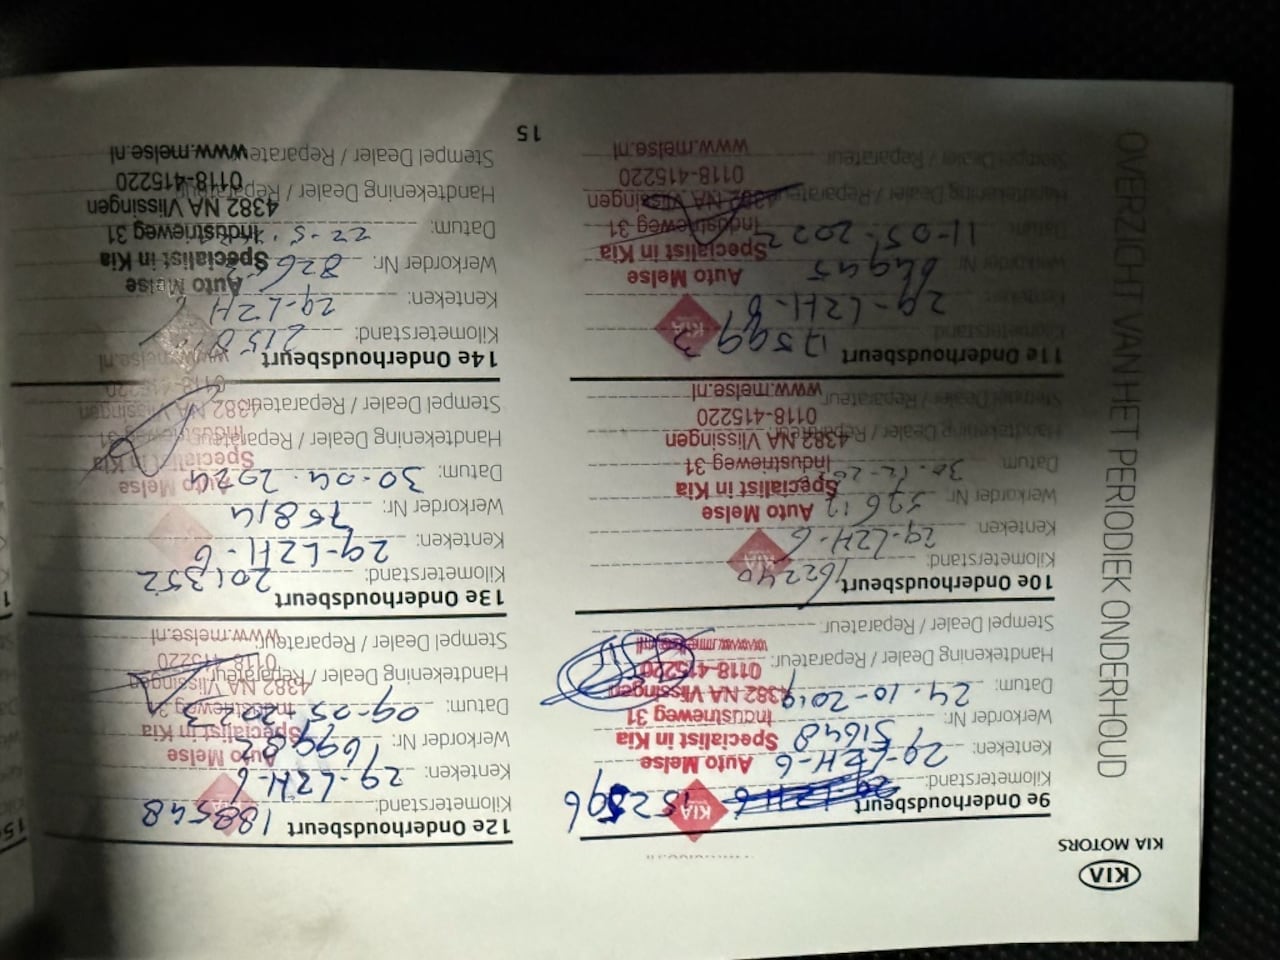 KIA
KIA MOTORS
OVERZICHT VAN HET PERIODIEK ONDERHOUD
9e Onderhoudsbeurt
Kilometerstand: 152596
Kenteken: 29-LZH-6
Werkorder Nr: 51648
Datum: 24-10-2019
Handtekening Dealer / Reparateur:
Stempel Dealer / Reparateur:
KIA
Auto Melse
Specialist in Kia
Industrieweg 31
4382 NA Vlissingen
0118-415220
www.melse.nl
10e Onderhoudsbeurt
Kilometerstand: 162240
Kenteken: 29-LZH-6
Werkorder Nr:
Datum: 30-12-20
Handtekening Dealer / Reparateur:
Stempel Dealer / Reparateur:
KIA
Auto Melse
Specialist in Kia
Industrieweg 31
4382 NA Vlissingen
0118-415220
www.melse.nl
11e Onderhoudsbeurt
Kilometerstand: 175993
Kenteken: 29-LZH-6
Werkorder Nr:
Datum: 11-05-2022
Handtekening Dealer / Reparateur:
Stempel Dealer / Reparateur:
KIA
Auto Melse
Specialist in Kia
Industrieweg 31
4382 NA Vlissingen
0118-415220
www.melse.nl
12e Onderhoudsbeurt
Kilometerstand: 188548
Kenteken: 29-LZH-6
Werkorder Nr: 169982
Datum: 09-05-2023
Handtekening Dealer / Reparateur:
Stempel Dealer / Reparateur:
Auto Melse
Specialist in Kia
Industrieweg 31
4382 NA Vlissingen
0118-415220
www.melse.nl
13e Onderhoudsbeurt
Kilometerstand: 201352
Kenteken: 29-LZH-6
Werkorder Nr: 75814
Datum: 30-04-2024
Handtekening Dealer / Reparateur:
Stempel Dealer / Reparateur:
Auto Melse
Specialist in Kia
4382 NA Vlissingen
0118-415220
www.melse.nl
14e Onderhoudsbeurt
Kilometerstand:
Kenteken: 29-LZH
Werkorder Nr:
Datum: 22-5-
Handtekening Dealer / Reparateur
Stempel Dealer / Reparate
Auto Melse
Specialist in Kia
Industrieweg 31
4382 NA Vlissingen
0118-415220
www.melse.nl
15